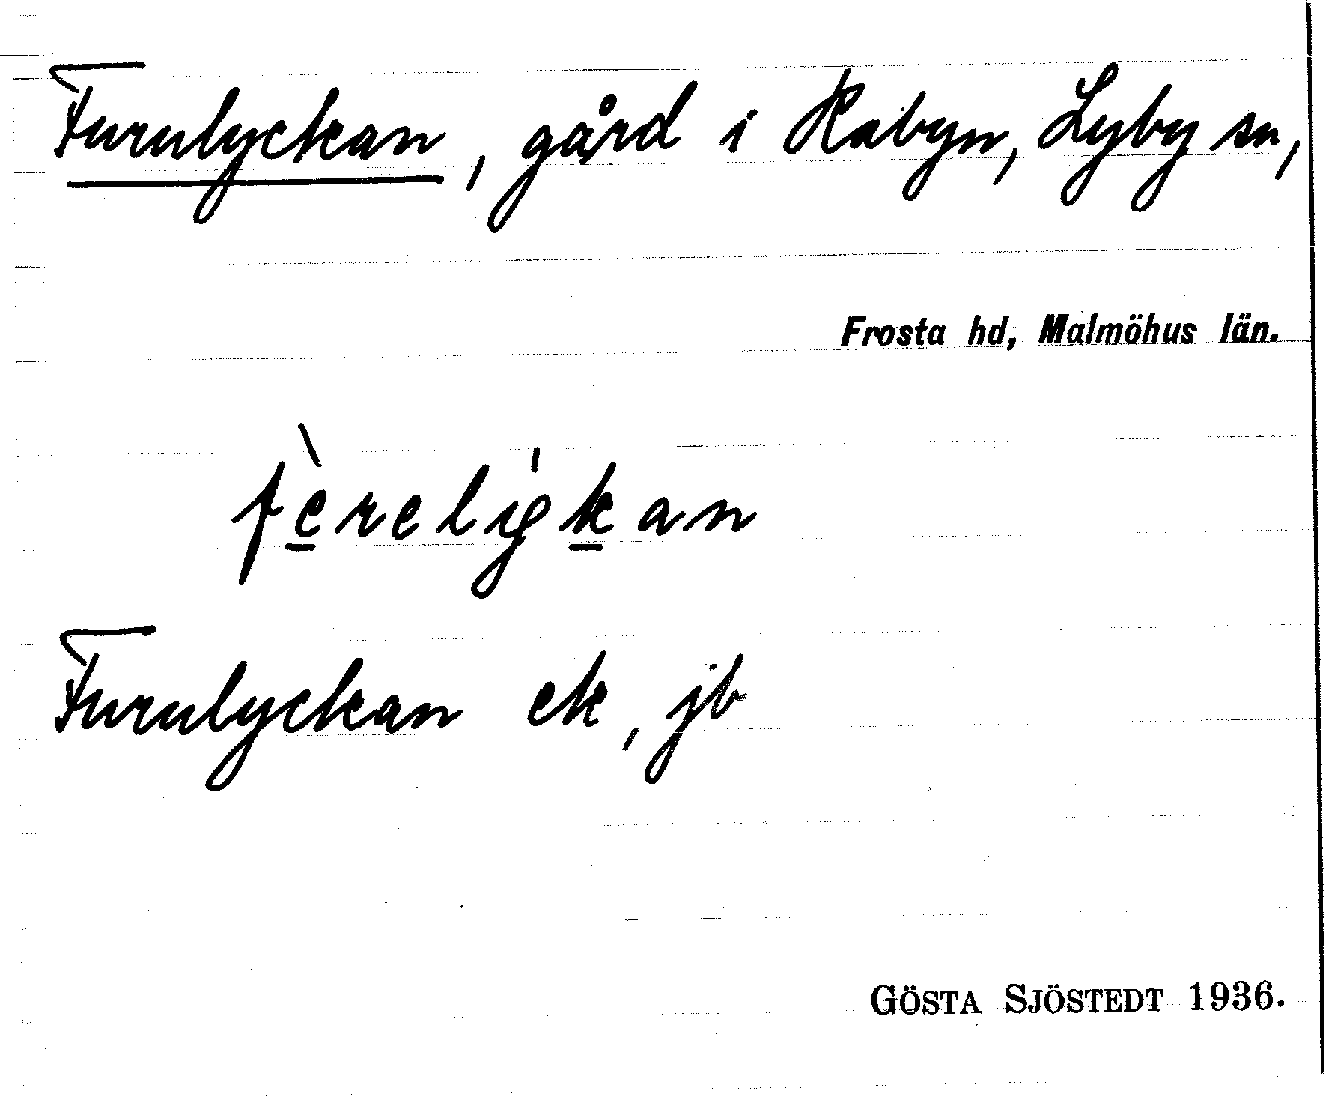 Furulyckan, gård i Rabyn, Lyby sn,
Frosta hd, Malmöhus län.
fè̲relyk̲an
Furulyckan ek, jb
GÖSTA SJÖSTEDT 1936.